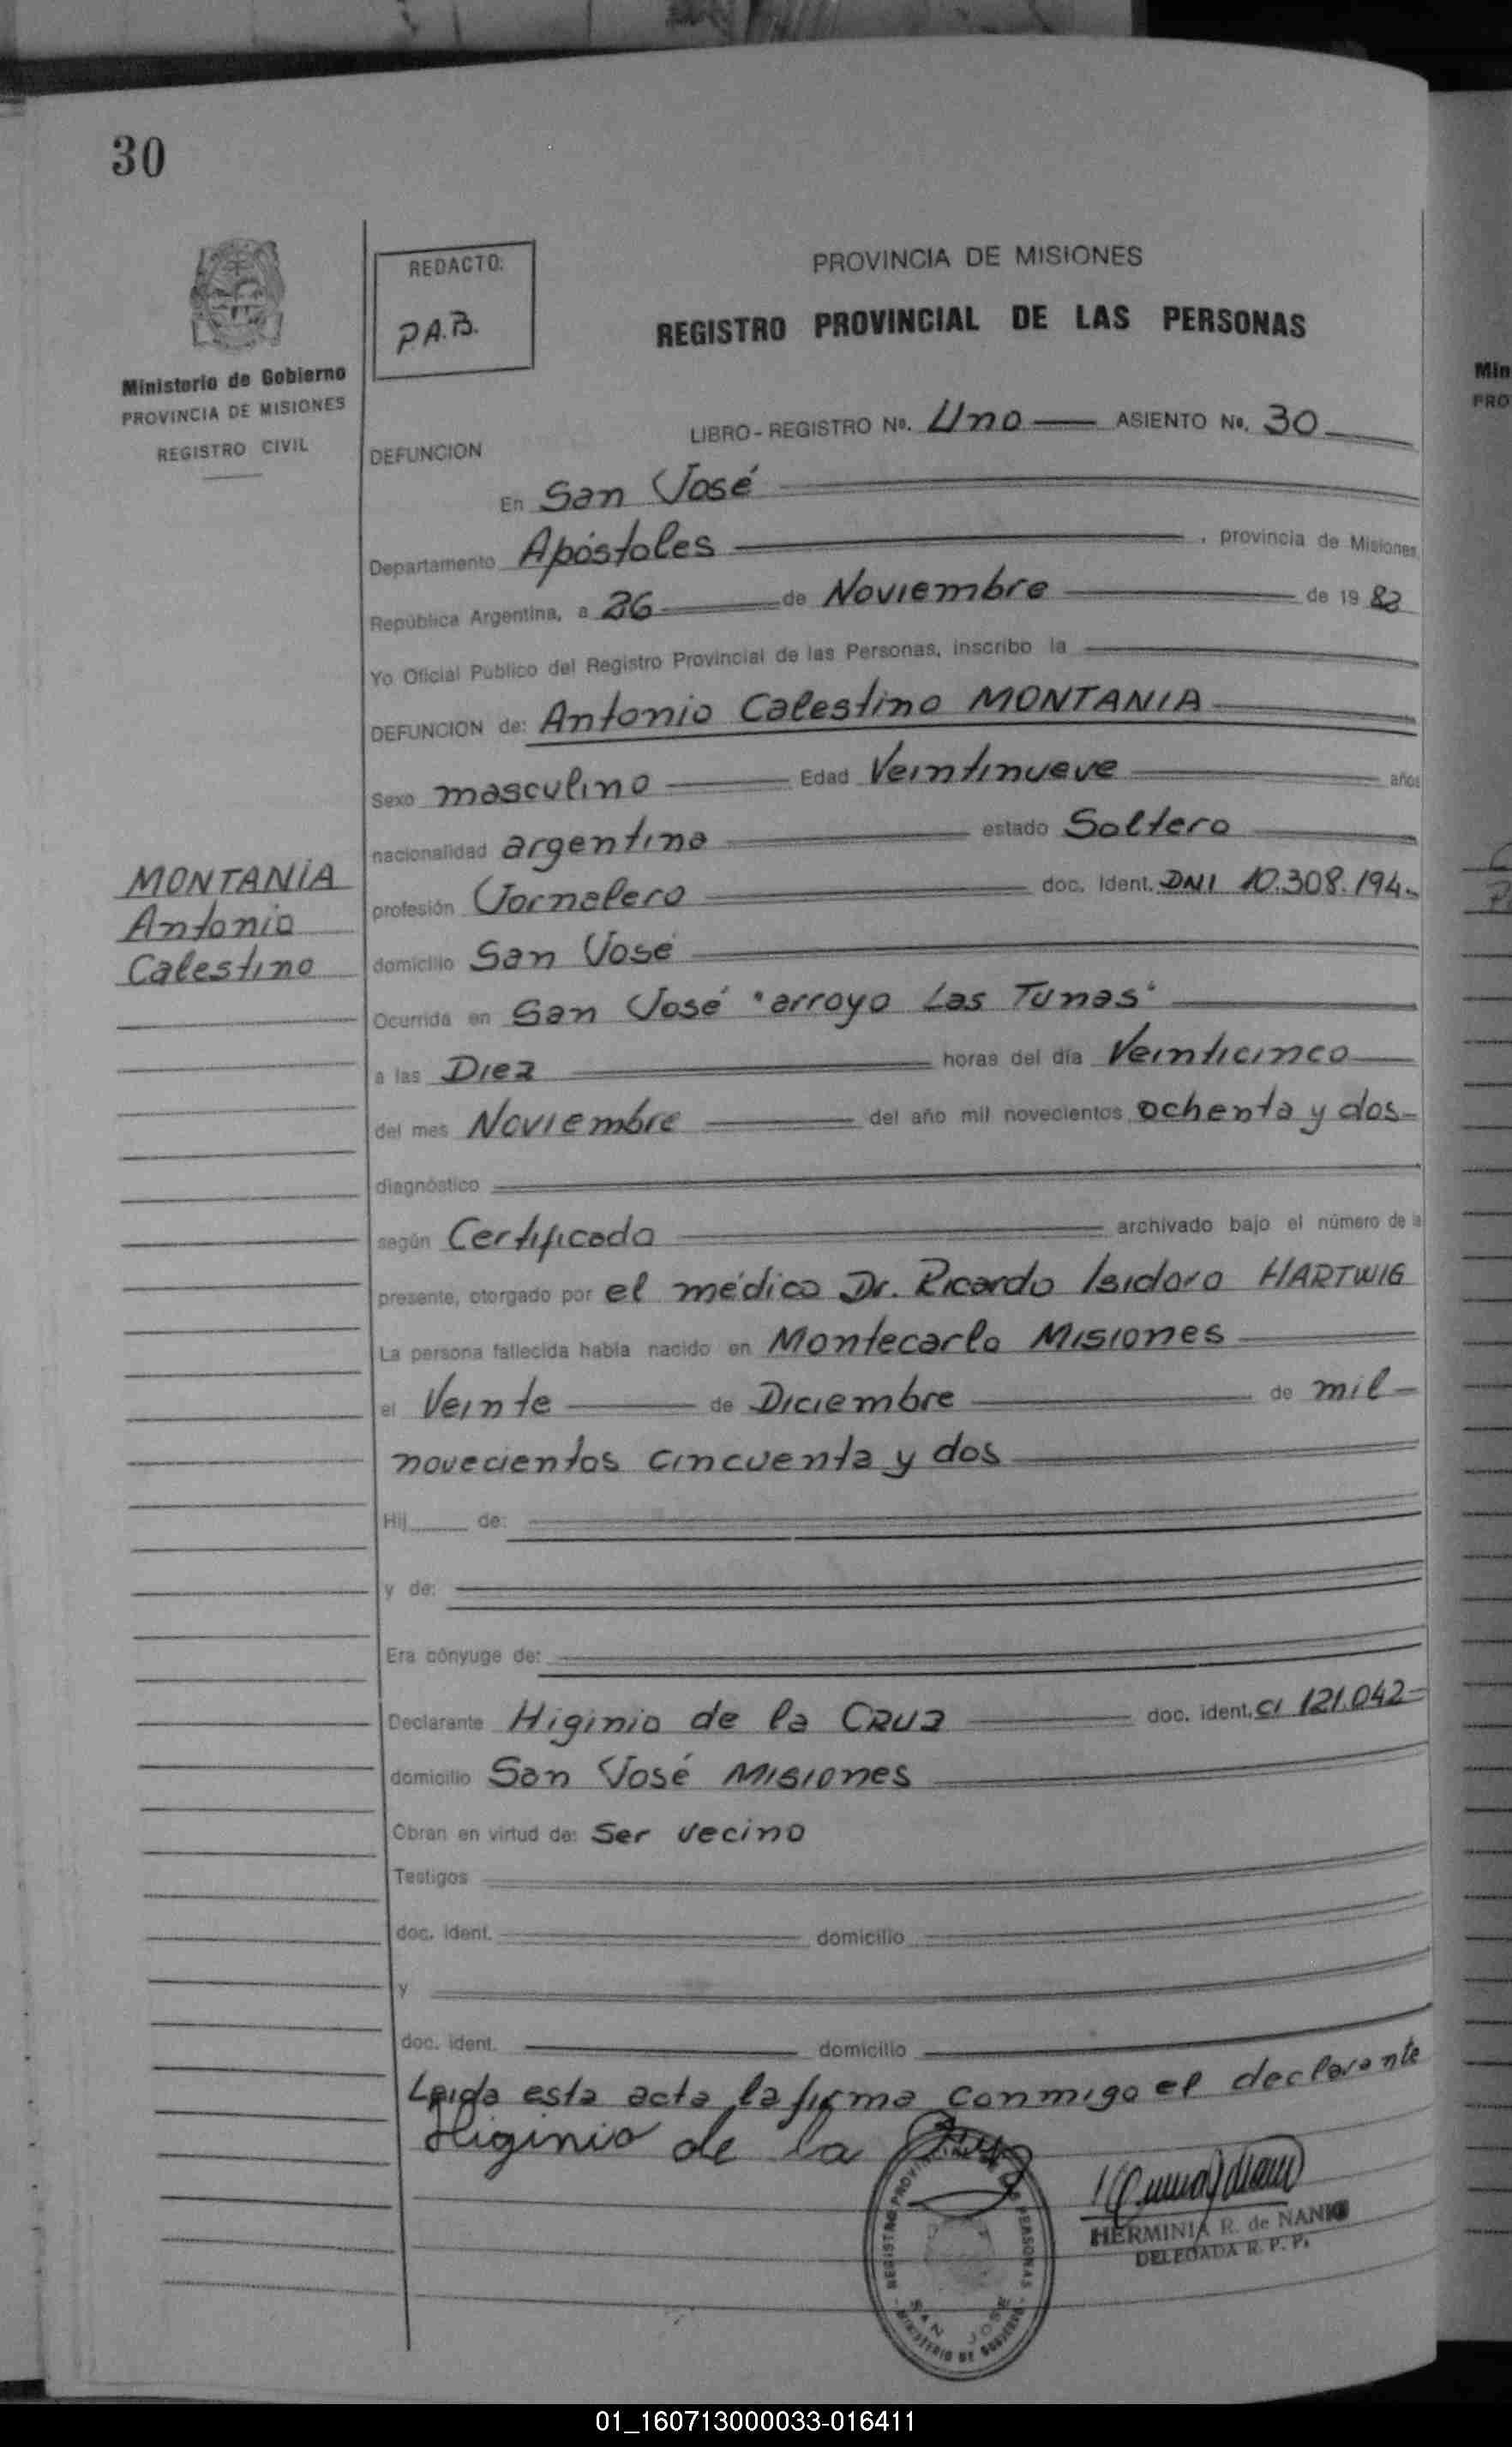 30
REDACTO:
P.A.B.
PROVINCIA DE MISIONES
REGISTRO PROVINCIAL DE LAS PERSONAS
Ministerio de Gobierno
PROVINCIA DE MISIONES
REGISTRO CIVIL
LIBRO - REGISTRO Nº. Uno ASIENTO Nº. 30
DEFUNCION
En San José
Departamento Apóstoles, provincia de Misiones,
República Argentina, a 26 de Noviembre de 19 82
Yo Oficial Público del Registro Provincial de las Personas, inscribo la
DEFUNCION de: Antonio Calestino MONTANIA
Sexo masculino Edad Veintinueve años
nacionalidad argentina estado Soltero
MONTANIA
Antonio
Calestino
profesión Jornalero doc. Ident. DNI 10.308.194.
domicilio San José
Ocurrida en San José "arroyo Las Tunas"
a las Diez horas del día Veinticinco
del mes Noviembre del año mil novecientos ochenta y dos
diagnóstico
según Certificado archivado bajo el número de la
presente, otorgado por el médico Dr. Ricardo Isidoro HARTWIG
La persona fallecida había nacido en Montecarlo Misiones
el Veinte de Diciembre de mil
novecientos cincuenta y dos
Hij de:
y de:
Era cónyuge de:
Declarante Higinio de la CRUZ doc. ident. CI 121.042
domicilio San José Misiones
Obran en virtud de: Ser vecino
Testigos
doc. ident. domicilio
y
doc. ident. domicilio
Leida esta acta la firma conmigo el declarante
Higinio de la Cruz
REGISTRO PROVINCIAL DE LAS PERSONAS
SAN JOSE
MINISTERIO DE GOBIERNO
HERMINIA R. de
DELEGADA R. P. P.
Min
PRO
01_160713000033-016411